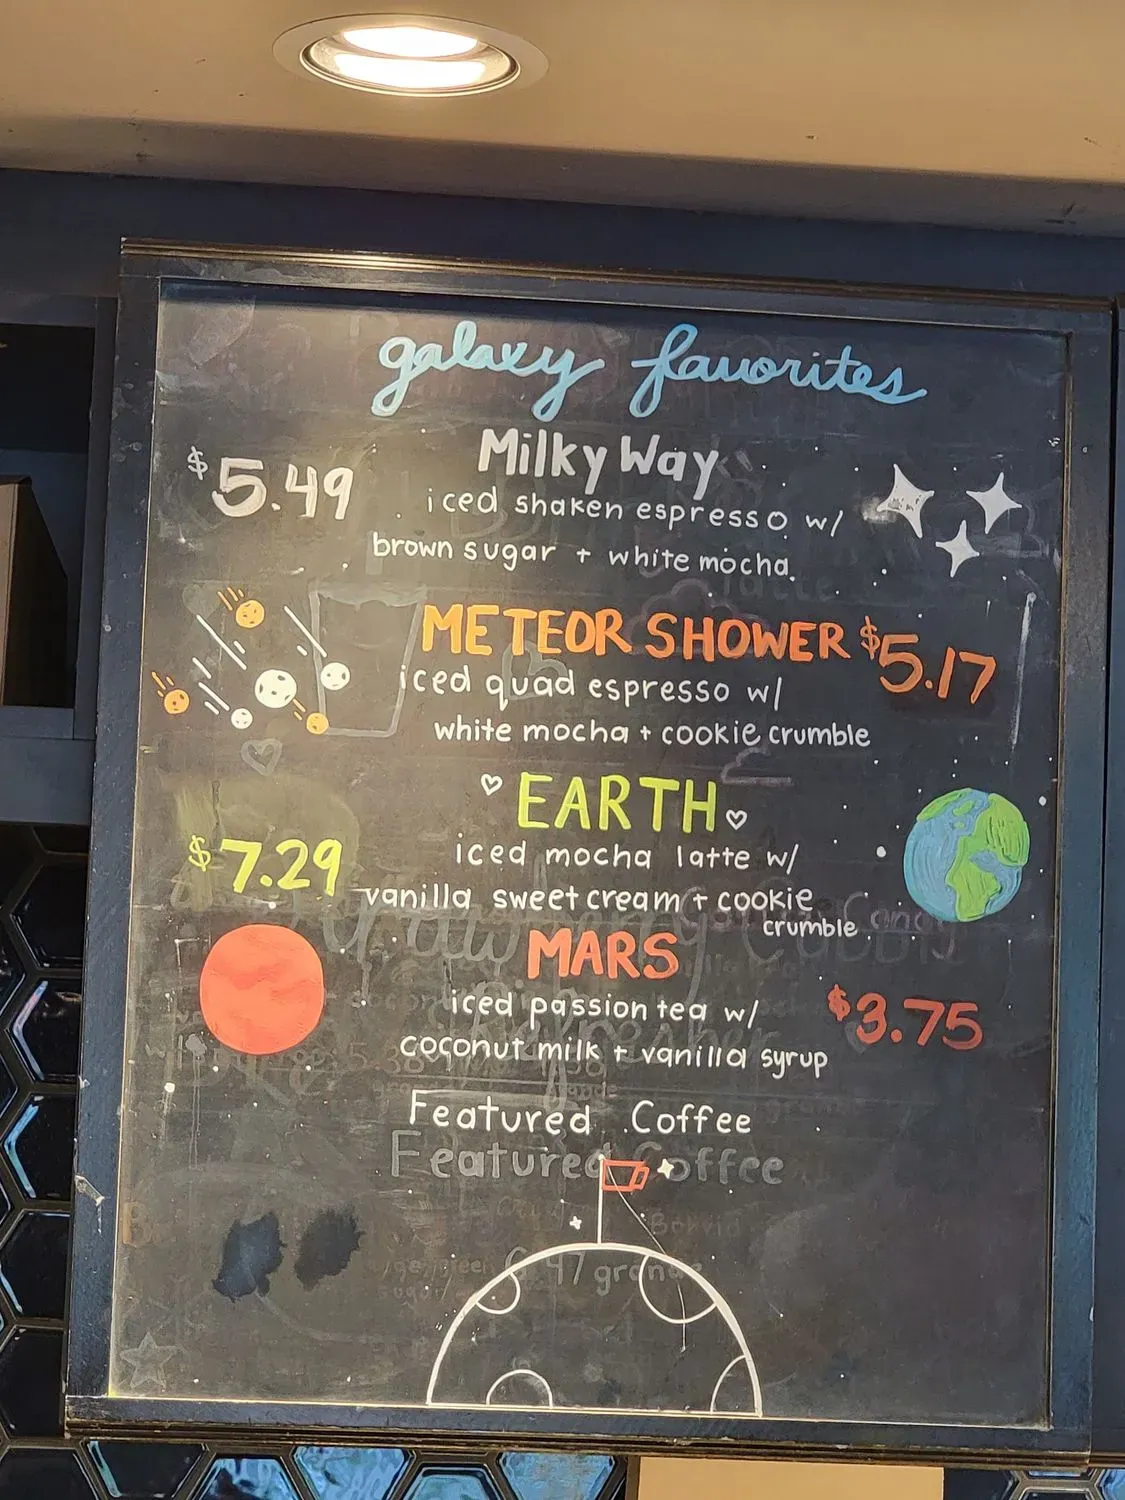 galaxy favorites
Milky Way
$5.49
iced shaken espresso w/
brown sugar + white mocha.
METEOR SHOWER $5.17
iced quad espresso w/
white mocha + cookie crumble
♡ EARTH ♡
$7.29
iced mocha latte w/
vanilla sweet cream + cookie
crumble
MARS
iced passion tea w/
$3.75
coconut milk + vanilla syrup
Featured Coffee
Featured Coffee